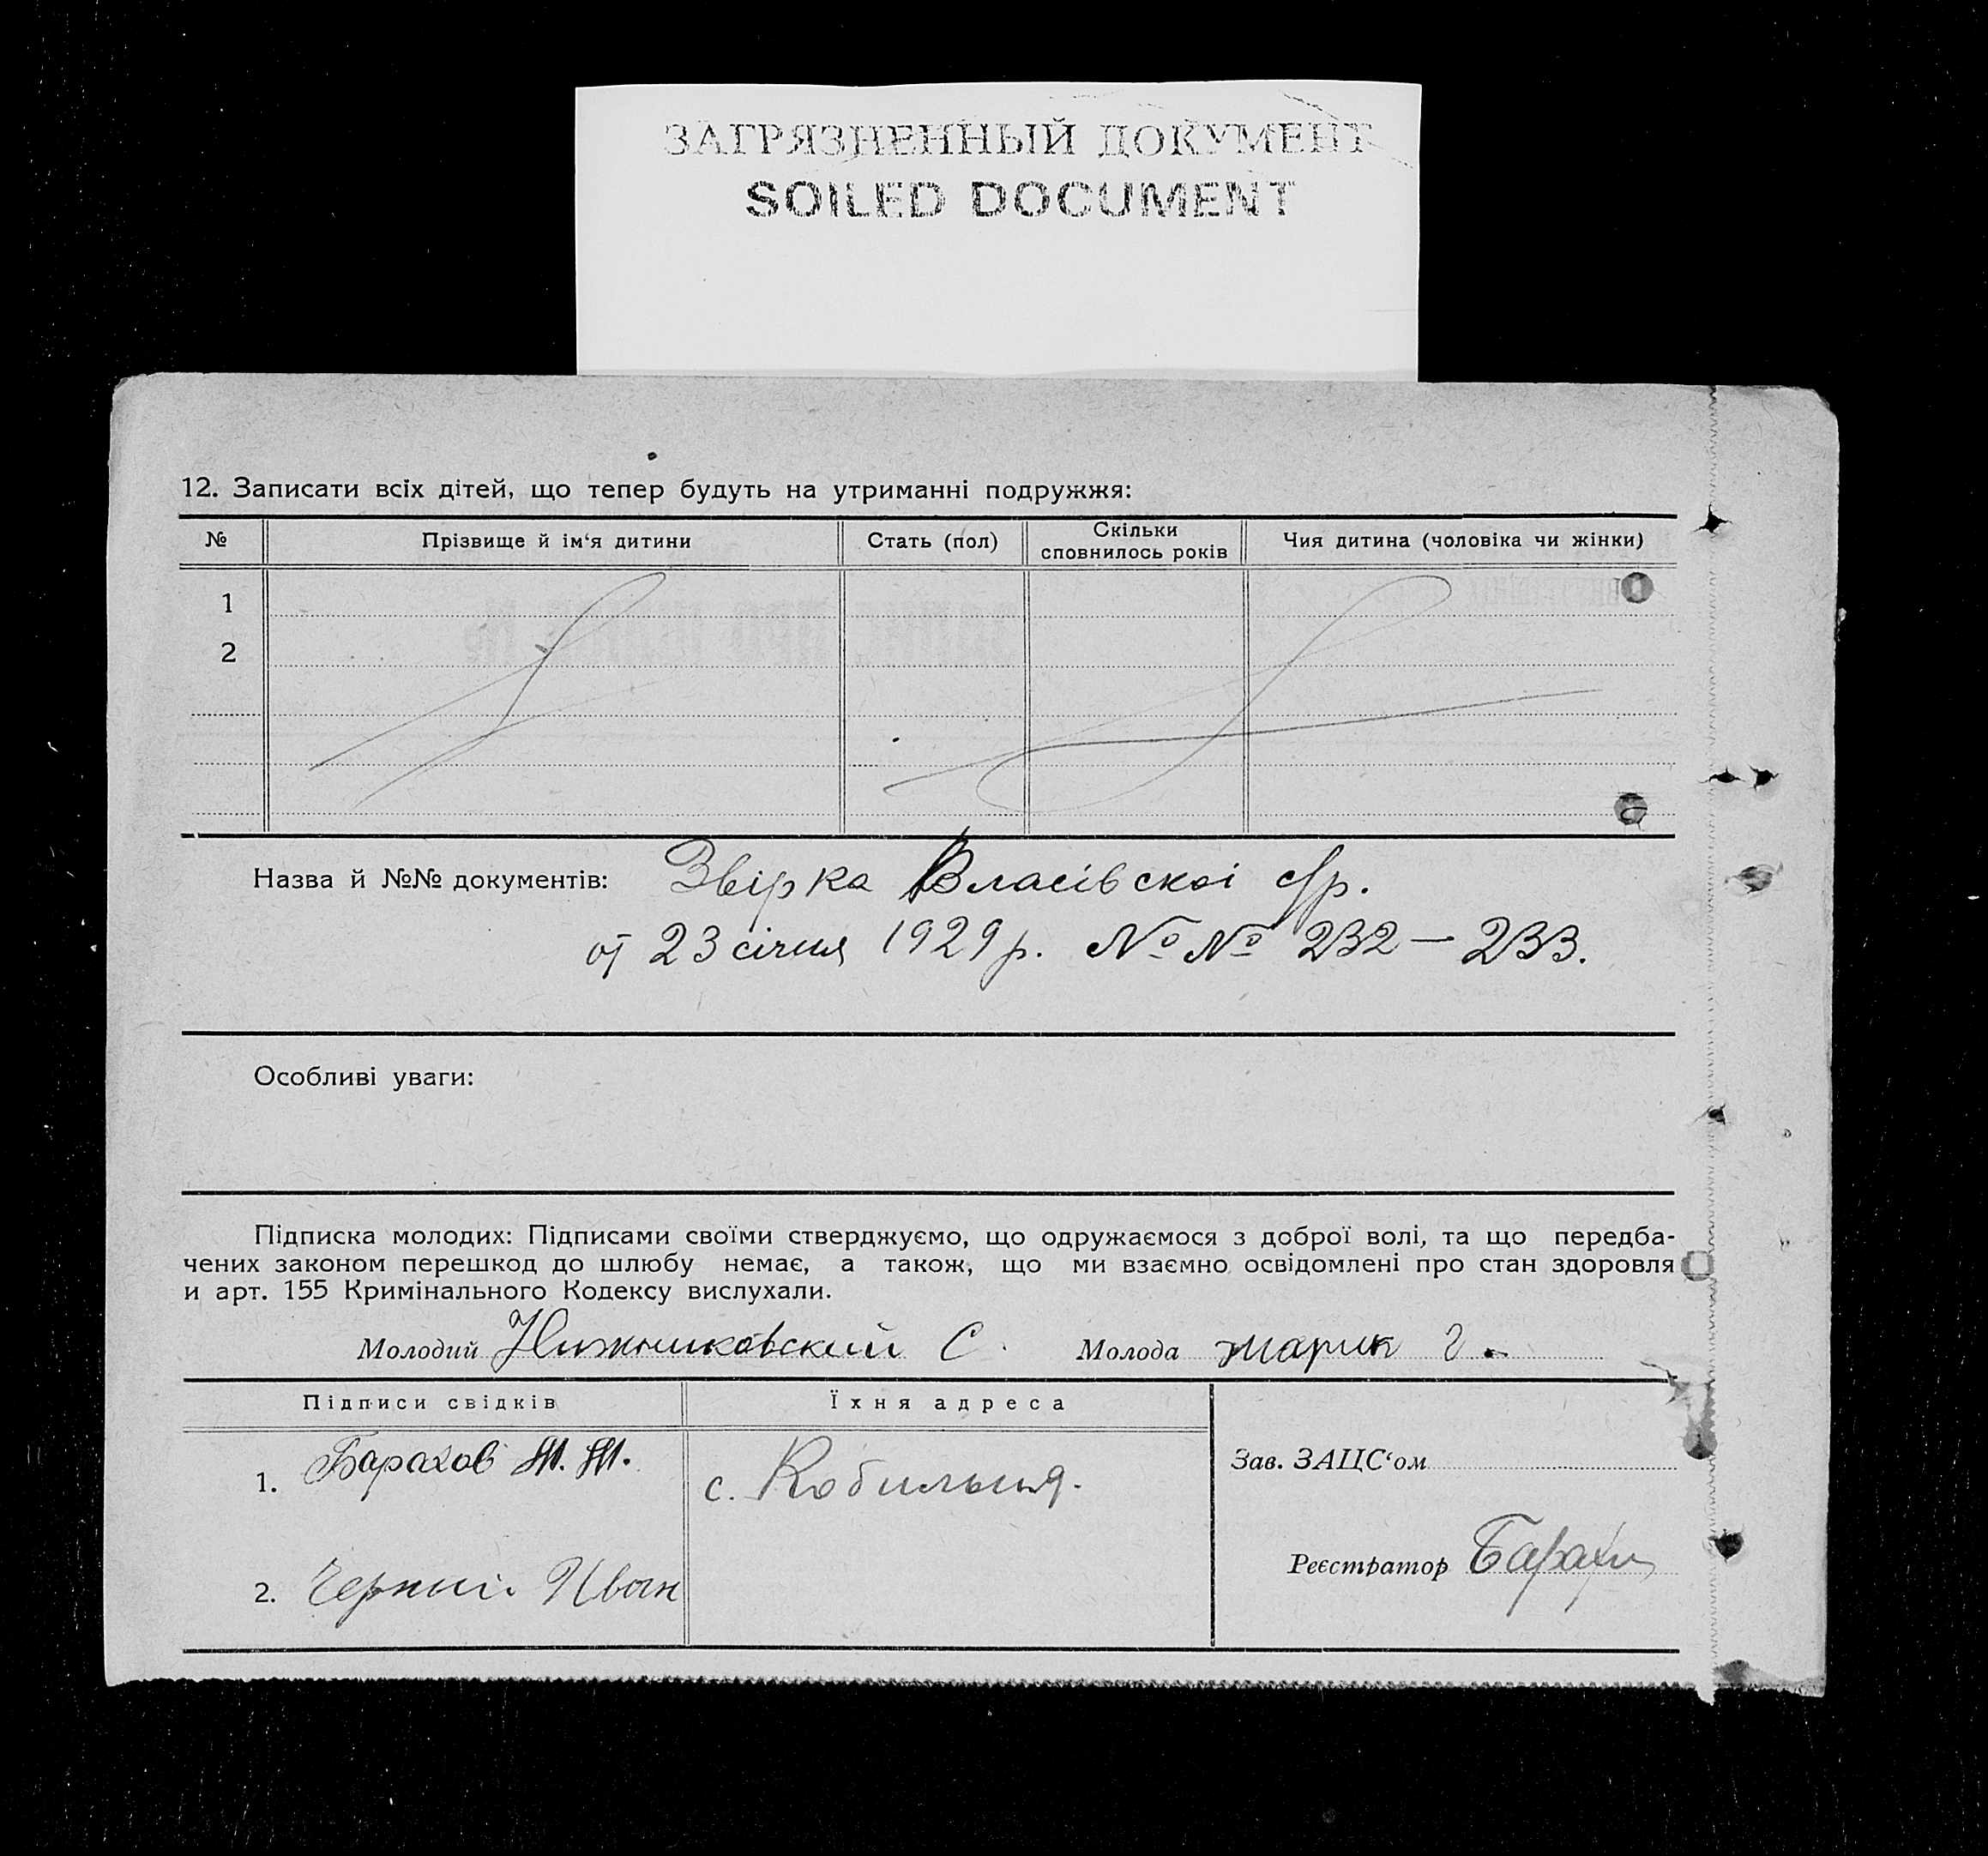 ЗАГРЯЗНЕННЫЙ ДОКУМЕНТ
SOILED DOCUMENT
12. Записати всіх дітей, що тепер будуть на утриманні подружжя:
№ Прізвище й ім‘я дитини Стать (пол) Скільки сповнилось років Чия дитина (чоловіка чи жінки)
1
2
Назва й №№ документів: Звірка Власівскоі с/р.
от 23 січня 1929 р. № № 232 — 233.
Особливі уваги:
Підписка молодих: Підписами своїми стверджуємо, що одружаємося з доброї волі, та що передба-
чених законом перешкод до шлюбу немає, а також, що ми взаємно освідомлені про стан здоровля
и арт. 155 Кримінального Кодексу вислухали.
Молодий Нижниковский С. Молода
Підписи свідків Їхня адреса
1. с. Кобильня.
Зав. ЗАЦС‘ом
2. Черний Иван
Реєстратор